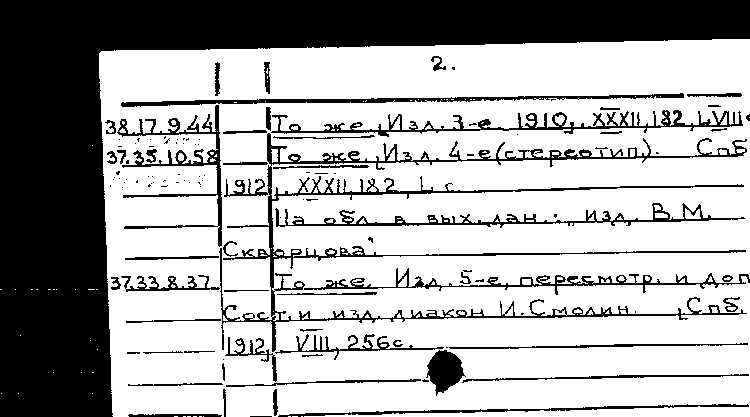 2.
38.17.9.44 То же, Изд. 3-е 1910, XXXII, 182, LVIII с
37.35.10.58 То же, Изд. 4-е (стереотип.). Спб
1912. XXXII, 182, L с.
На обл. в вых. дан.: изд. В.М.
Скворцова.
37.33.8.37 То же. Изд. 5-е, пересмотр. и доп
Сост. и изд. диакон И. Смолин. Спб.
1912, VIII, 256 с.